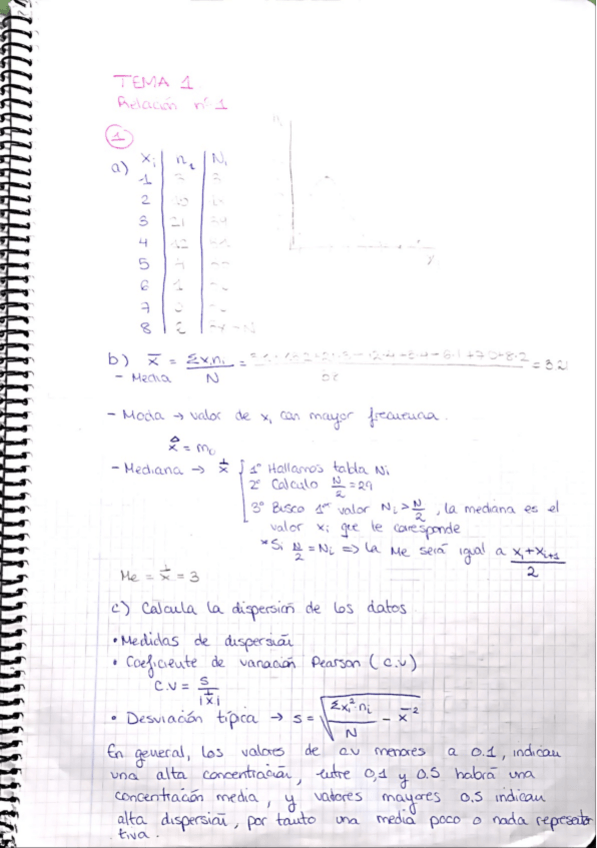 TEMA 1
Relación nº 1
1
a) xi ni Ni
1
2
3 21
4 12
5
6 1
7
8
b) x̄ = Σxini / N = = 3.21
- Media
- Moda → valor de xi con mayor frecuencia.
x̂ = mo
- Mediana → x̃ { 1º Hallamos tabla Ni
2º Calculo N/2 = 29
3º Busco 1er valor Ni > N/2, la mediana es el
valor xi que le corresponde
*Si N/2 = Ni => La Me será igual a (xi + xi+1)/2
Me = x̃ = 3
c) Calcula la dispersión de los datos
• Medidas de dispersión
• Coeficiente de variación Pearson (c.v)
C.V = s / |x̄|
• Desviación típica → s = √(Σxi²·ni / N - x̄²)
En general, los valores de cv menores a 0.1, indican
una alta concentración, entre 0,1 y 0.5 habrá una
concentración media, y valores mayores 0.5 indican
alta dispersión, por tanto una media poco o nada representa
tiva.